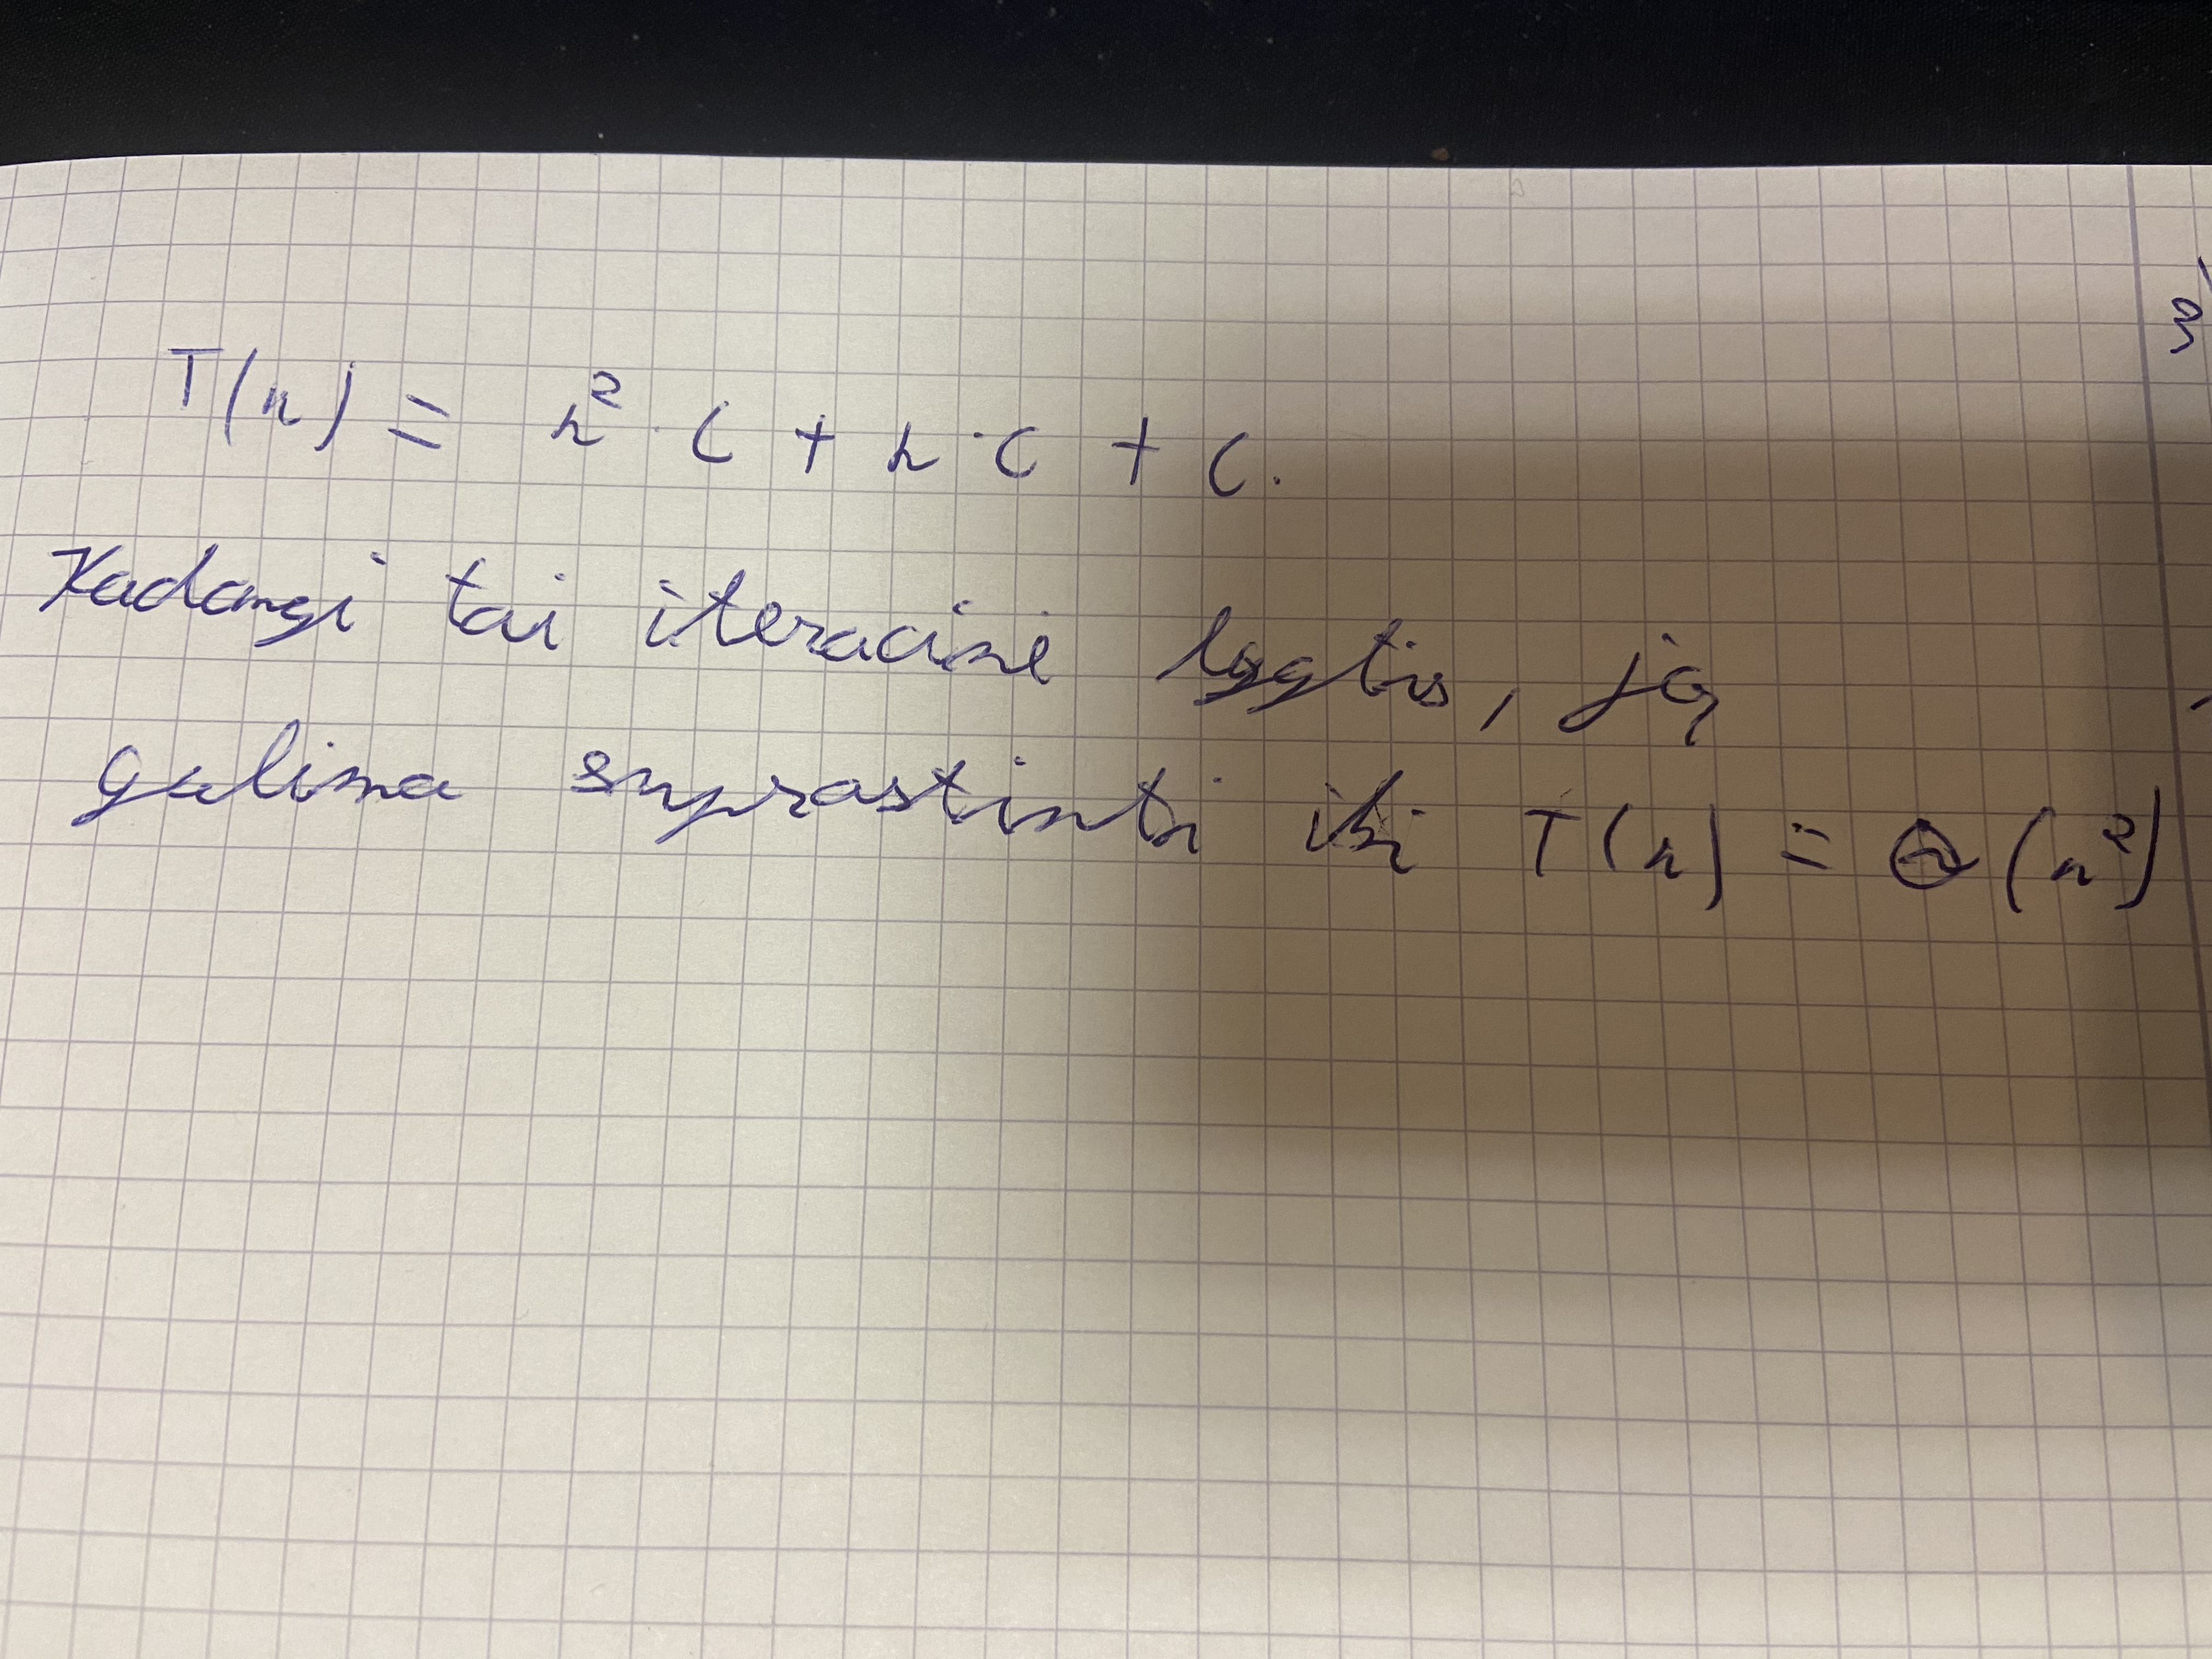 T(n) = n² · c + n · c + c.
Kadangi tai iteracinė lygtis, ją
galima suprastinti iki T(n) = Θ(n²)